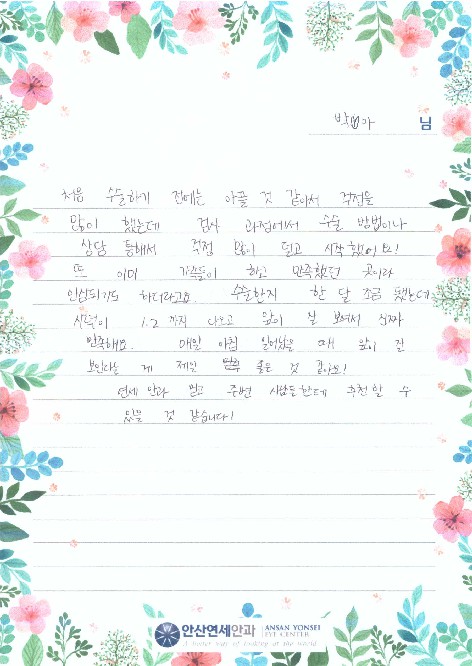 박 가 님
처음 수술하기 전에는 아플 것 같아서 걱정을
많이 했는데 검사 과정에서 수술 방법이나
상담 통해서 걱정 많이 덜고 시작했어요!
또 이미 가족들이 하고 만족했던 곳이라
안심되기도 하더라고요. 수술한지 한 달 조금 됐는데
시력이 1.2 까지 나오고 앞이 잘 보여서 진짜
만족해요. 매일 아침 일어났을 때 앞이 잘
보인다는 게 제일 좋은 것 같아요!
연세 안과 믿고 주변 사람들한테 추천할 수
있을 것 같습니다!
안산연세안과 ANSAN YONSEI
EYE CENTER
A better way of looking at the world